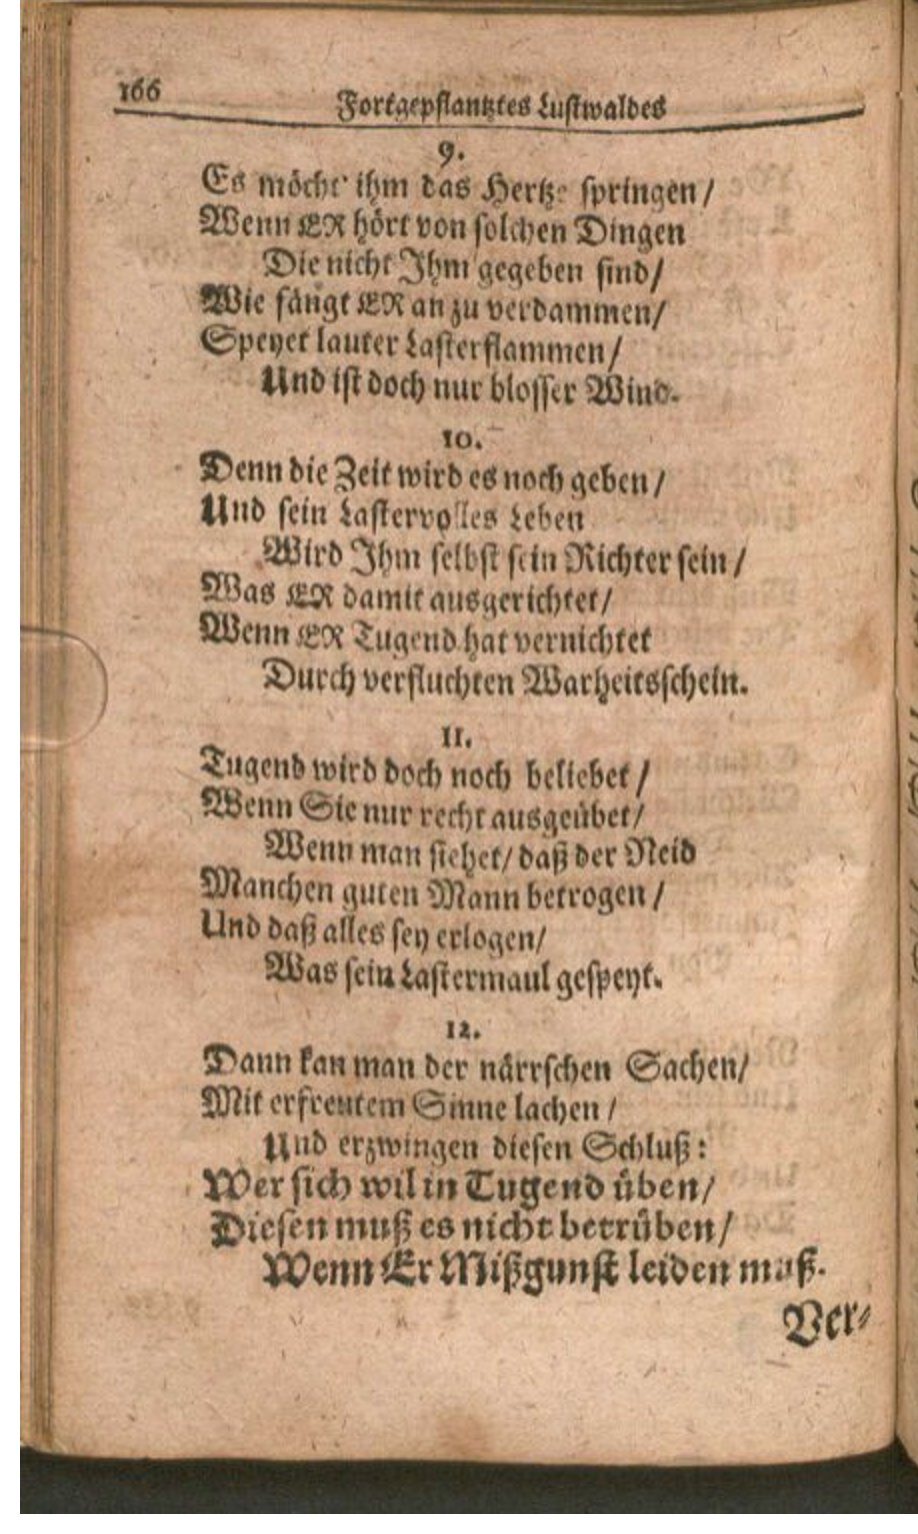 166
Fortgepflantztes Lustwaldes
9.
Es möcht' ihm das Hertze springen /
Wenn ER hört von solchen Dingen
Die nicht Ihm gegeben sind /
Wie fängt ER an zu verdammen /
Speyet lauter Lasterflammen /
Und ist doch nur blosser Wind.
10.
Denn die Zeit wird es noch geben /
Und sein Lastervolles Leben
Wird Ihm selbst sein Richter sein /
Was ER damit ausgerichtet /
Wenn ER Tugend hat vernichtet
Durch verfluchten Warheitsschein.
11.
Tugend wird doch noch beliebet /
Wenn Sie nur recht ausgeübet /
Wenn man siehet / daß der Neid
Manchen guten Mann betrogen /
Und daß alles sey erlogen /
Was sein Lastermaul gespeyt.
12.
Dann kan man der närrschen Sachen /
Mit erfreutem Sinne lachen /
Und erzwingen diesen Schluß:
Wer sich wil in Tugend üben /
Diesen muß es nicht betrüben /
Wenn Er Mißgunst leiden muß.
Ver-